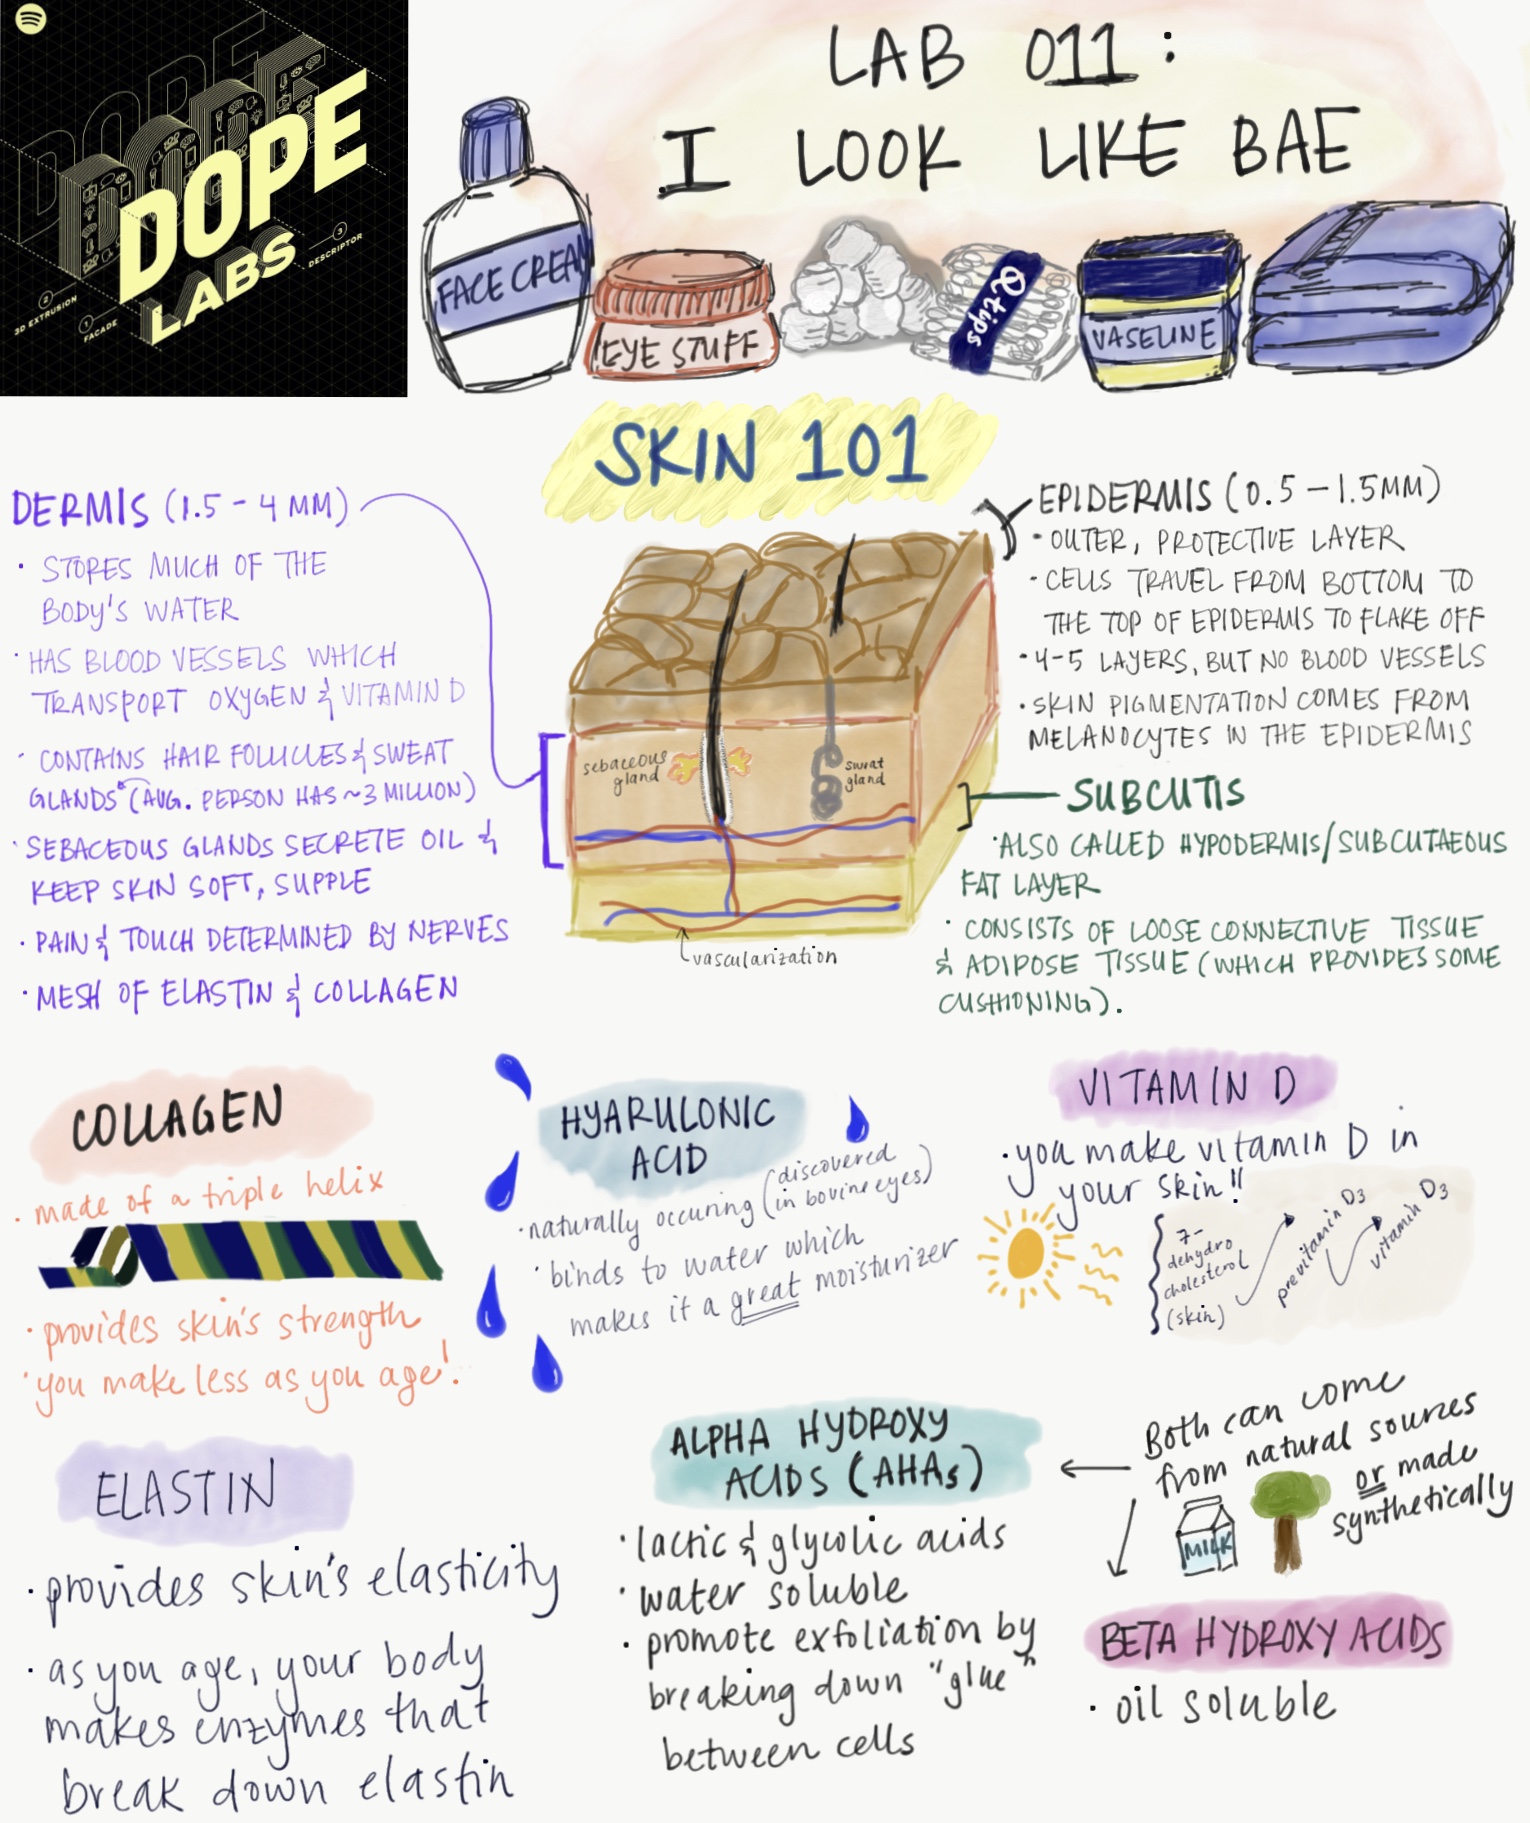 DOPE
LABS
3D EXTRUSION
2
FACADE
1
DESCRIPTOR
3
LAB 011:
I LOOK LIKE BAE
FACE CREAM
EYE STUFF
Q tips
VASELINE
SKIN 101
DERMIS (1.5 - 4 MM)
· STORES MUCH OF THE
BODY'S WATER
· HAS BLOOD VESSELS WHICH
TRANSPORT OXYGEN & VITAMIN D
· CONTAINS HAIR FOLLICLES & SWEAT
GLANDS (AVG. PERSON HAS ~3 MILLION)
· SEBACEOUS GLANDS SECRETE OIL &
KEEP SKIN SOFT, SUPPLE
· PAIN & TOUCH DETERMINED BY NERVES
· MESH OF ELASTIN & COLLAGEN
sebaceous
gland
sweat
gland
vascularization
EPIDERMIS (0.5 - 1.5MM)
· OUTER, PROTECTIVE LAYER
· CELLS TRAVEL FROM BOTTOM TO
THE TOP OF EPIDERMIS TO FLAKE OFF
· 4-5 LAYERS, BUT NO BLOOD VESSELS
· SKIN PIGMENTATION COMES FROM
MELANOCYTES IN THE EPIDERMIS
SUBCUTIS
· ALSO CALLED HYPODERMIS/SUBCUTAEOUS
FAT LAYER
· CONSISTS OF LOOSE CONNECTIVE TISSUE
& ADIPOSE TISSUE (WHICH PROVIDES SOME
CUSHIONING).
COLLAGEN
· made of a triple helix
· provides skin's strength
· you make less as you age!
HYARULONIC
ACID
· naturally occuring (discovered
in bovine eyes)
· binds to water which
makes it a great moisturizer
VITAMIN D
· you make vitamin D in
your skin!!
7-
dehydro
cholesterol
(skin)
previtamin D3
vitamin D3
ELASTIN
· provides skin's elasticity
· as you age, your body
makes enzymes that
break down elastin
ALPHA HYDROXY
ACIDS (AHAs)
· lactic & glycolic acids
· water soluble
· promote exfoliation by
breaking down "glue"
between cells
Both can come
from natural sources
or made
synthetically
MILK
BETA HYDROXY ACIDS
· oil soluble